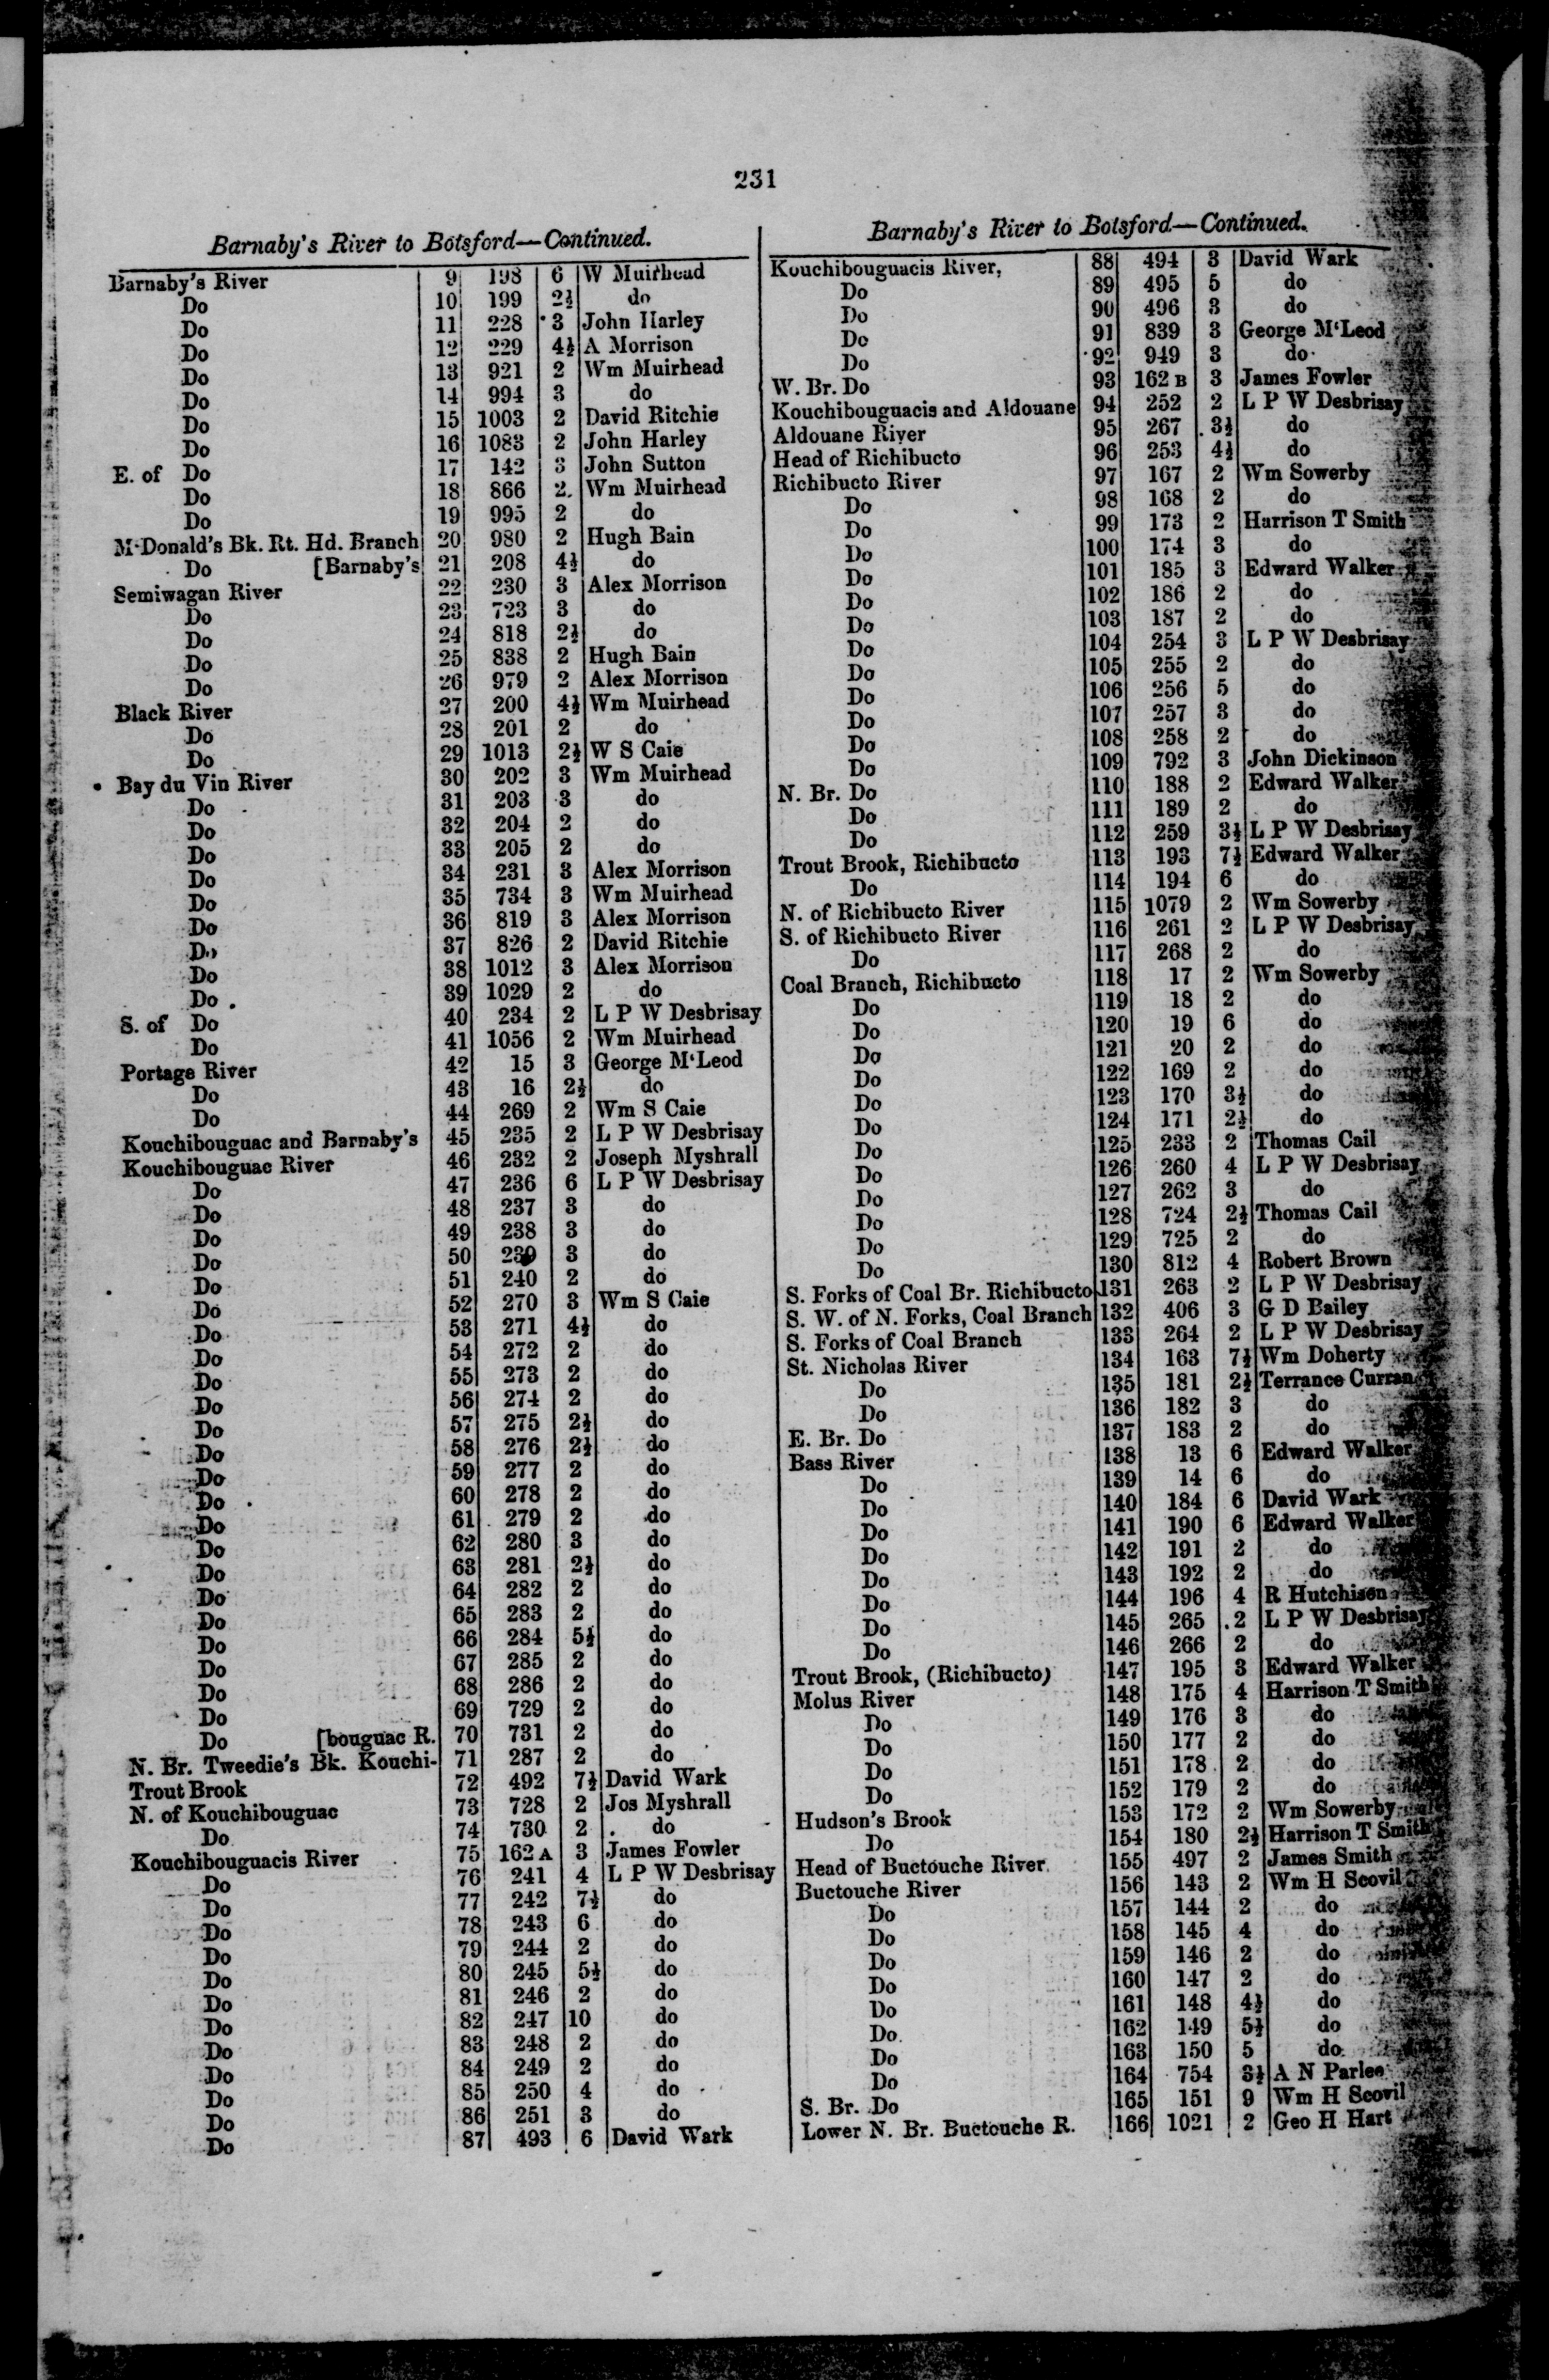 231
Barnaby's River to Botsford—Continued.
Barnaby's River 9 198 6 W Muirhead
Do 10 199 2½ do
Do 11 228 3 John Harley
Do 12 229 4½ A Morrison
Do 13 921 2 Wm Muirhead
Do 14 994 3 do
Do 15 1003 2 David Ritchie
Do 16 1083 2 John Harley
E. of Do 17 142 3 John Sutton
Do 18 866 2 Wm Muirhead
Do 19 995 2 do
M'Donald's Bk. Rt. Hd. Branch 20 980 2 Hugh Bain
Do [Barnaby's 21 208 4½ do
Semiwagan River 22 230 3 Alex Morrison
Do 23 723 3 do
Do 24 818 2½ do
Do 25 838 2 Hugh Bain
Do 26 979 2 Alex Morrison
Black River 27 200 4½ Wm Muirhead
Do 28 201 2 do
Do 29 1013 2½ W S Caie
Bay du Vin River 30 202 3 Wm Muirhead
Do 31 203 3 do
Do 32 204 2 do
Do 33 205 2 do
Do 34 231 3 Alex Morrison
Do 35 734 3 Wm Muirhead
Do 36 819 3 Alex Morrison
Do 37 826 2 David Ritchie
Do 38 1012 3 Alex Morrison
Do 39 1029 2 do
S. of Do 40 234 2 L P W Desbrisay
Do 41 1056 2 Wm Muirhead
Portage River 42 15 3 George M'Leod
Do 43 16 2½ do
Do 44 269 2 Wm S Caie
Kouchibouguac and Barnaby's 45 235 2 L P W Desbrisay
Kouchibouguac River 46 232 2 Joseph Myshrall
Do 47 236 6 L P W Desbrisay
Do 48 237 3 do
Do 49 238 3 do
Do 50 239 3 do
Do 51 240 2 do
Do 52 270 3 Wm S Caie
Do 53 271 4½ do
Do 54 272 2 do
Do 55 273 2 do
Do 56 274 2 do
Do 57 275 2½ do
Do 58 276 2½ do
Do 59 277 2 do
Do 60 278 2 do
Do 61 279 2 do
Do 62 280 3 do
Do 63 281 2½ do
Do 64 282 2 do
Do 65 283 2 do
Do 66 284 5½ do
Do 67 285 2 do
Do 68 286 2 do
Do 69 729 2 do
Do [bouguac R. 70 731 2 do
N. Br. Tweedie's Bk. Kouchi- 71 287 2 do
Trout Brook 72 492 7½ David Wark
N. of Kouchibouguac 73 728 2 Jos Myshrall
Do 74 730 2 do
Kouchibouguacis River 75 162 A 3 James Fowler
Do 76 241 4 L P W Desbrisay
Do 77 242 7½ do
Do 78 243 6 do
Do 79 244 2 do
Do 80 245 5½ do
Do 81 246 2 do
Do 82 247 10 do
Do 83 248 2 do
Do 84 249 2 do
Do 85 250 4 do
Do 86 251 3 do
Do 87 493 6 David Wark
Barnaby's River to Botsford—Continued.
Kouchibouguacis River, 88 494 3 David Wark
Do 89 495 5 do
Do 90 496 3 do
Do 91 839 3 George M'Leod
Do 92 949 3 do
W. Br. Do 93 162 B 3 James Fowler
Kouchibouguacis and Aldouane 94 252 2 L P W Desbrisay
Aldouane River 95 267 3½ do
Head of Richibucto 96 253 4½ do
Richibucto River 97 167 2 Wm Sowerby
Do 98 168 2 do
Do 99 173 2 Harrison T Smith
Do 100 174 3 do
Do 101 185 3 Edward Walker
Do 102 186 2 do
Do 103 187 2 do
Do 104 254 3 L P W Desbrisay
Do 105 255 2 do
Do 106 256 5 do
Do 107 257 3 do
Do 108 258 2 do
Do 109 792 3 John Dickinson
N. Br. Do 110 188 2 Edward Walker
Do 111 189 2 do
Do 112 259 3½ L P W Desbrisay
Trout Brook, Richibucto 113 193 7½ Edward Walker
Do 114 194 6 do
N. of Richibucto River 115 1079 2 Wm Sowerby
S. of Richibucto River 116 261 2 L P W Desbrisay
Do 117 268 2 do
Coal Branch, Richibucto 118 17 2 Wm Sowerby
Do 119 18 2 do
Do 120 19 6 do
Do 121 20 2 do
Do 122 169 2 do
Do 123 170 3½ do
Do 124 171 2½ do
Do 125 233 2 Thomas Cail
Do 126 260 4 L P W Desbrisay
Do 127 262 3 do
Do 128 724 2½ Thomas Cail
Do 129 725 2 do
Do 130 812 4 Robert Brown
S. Forks of Coal Br. Richibucto 131 263 2 L P W Desbrisay
S. W. of N. Forks, Coal Branch 132 406 3 G D Bailey
S. Forks of Coal Branch 133 264 2 L P W Desbrisay
St. Nicholas River 134 163 7½ Wm Doherty
Do 135 181 2½ Terrance Curran
Do 136 182 3 do
E. Br. Do 137 183 2 do
Bass River 138 13 6 Edward Walker
Do 139 14 6 do
Do 140 184 6 David Wark
Do 141 190 6 Edward Walker
Do 142 191 2 do
Do 143 192 2 do
Do 144 196 4 R Hutchison
Do 145 265 2 L P W Desbrisay
Do 146 266 2 do
Trout Brook, (Richibucto) 147 195 3 Edward Walker
Molus River 148 175 4 Harrison T Smith
Do 149 176 3 do
Do 150 177 2 do
Do 151 178 2 do
Do 152 179 2 do
Hudson's Brook 153 172 2 Wm Sowerby
Do 154 180 2½ Harrison T Smith
Head of Buctouche River 155 497 2 James Smith
Buctouche River 156 143 2 Wm H Scovil
Do 157 144 2 do
Do 158 145 4 do
Do 159 146 2 do
Do 160 147 2 do
Do 161 148 4½ do
Do 162 149 5½ do
Do 163 150 5 do
Do 164 754 3½ A N Parlee
S. Br. Do 165 151 9 Wm H Scovil
Lower N. Br. Buctouche R. 166 1021 2 Geo H Hart